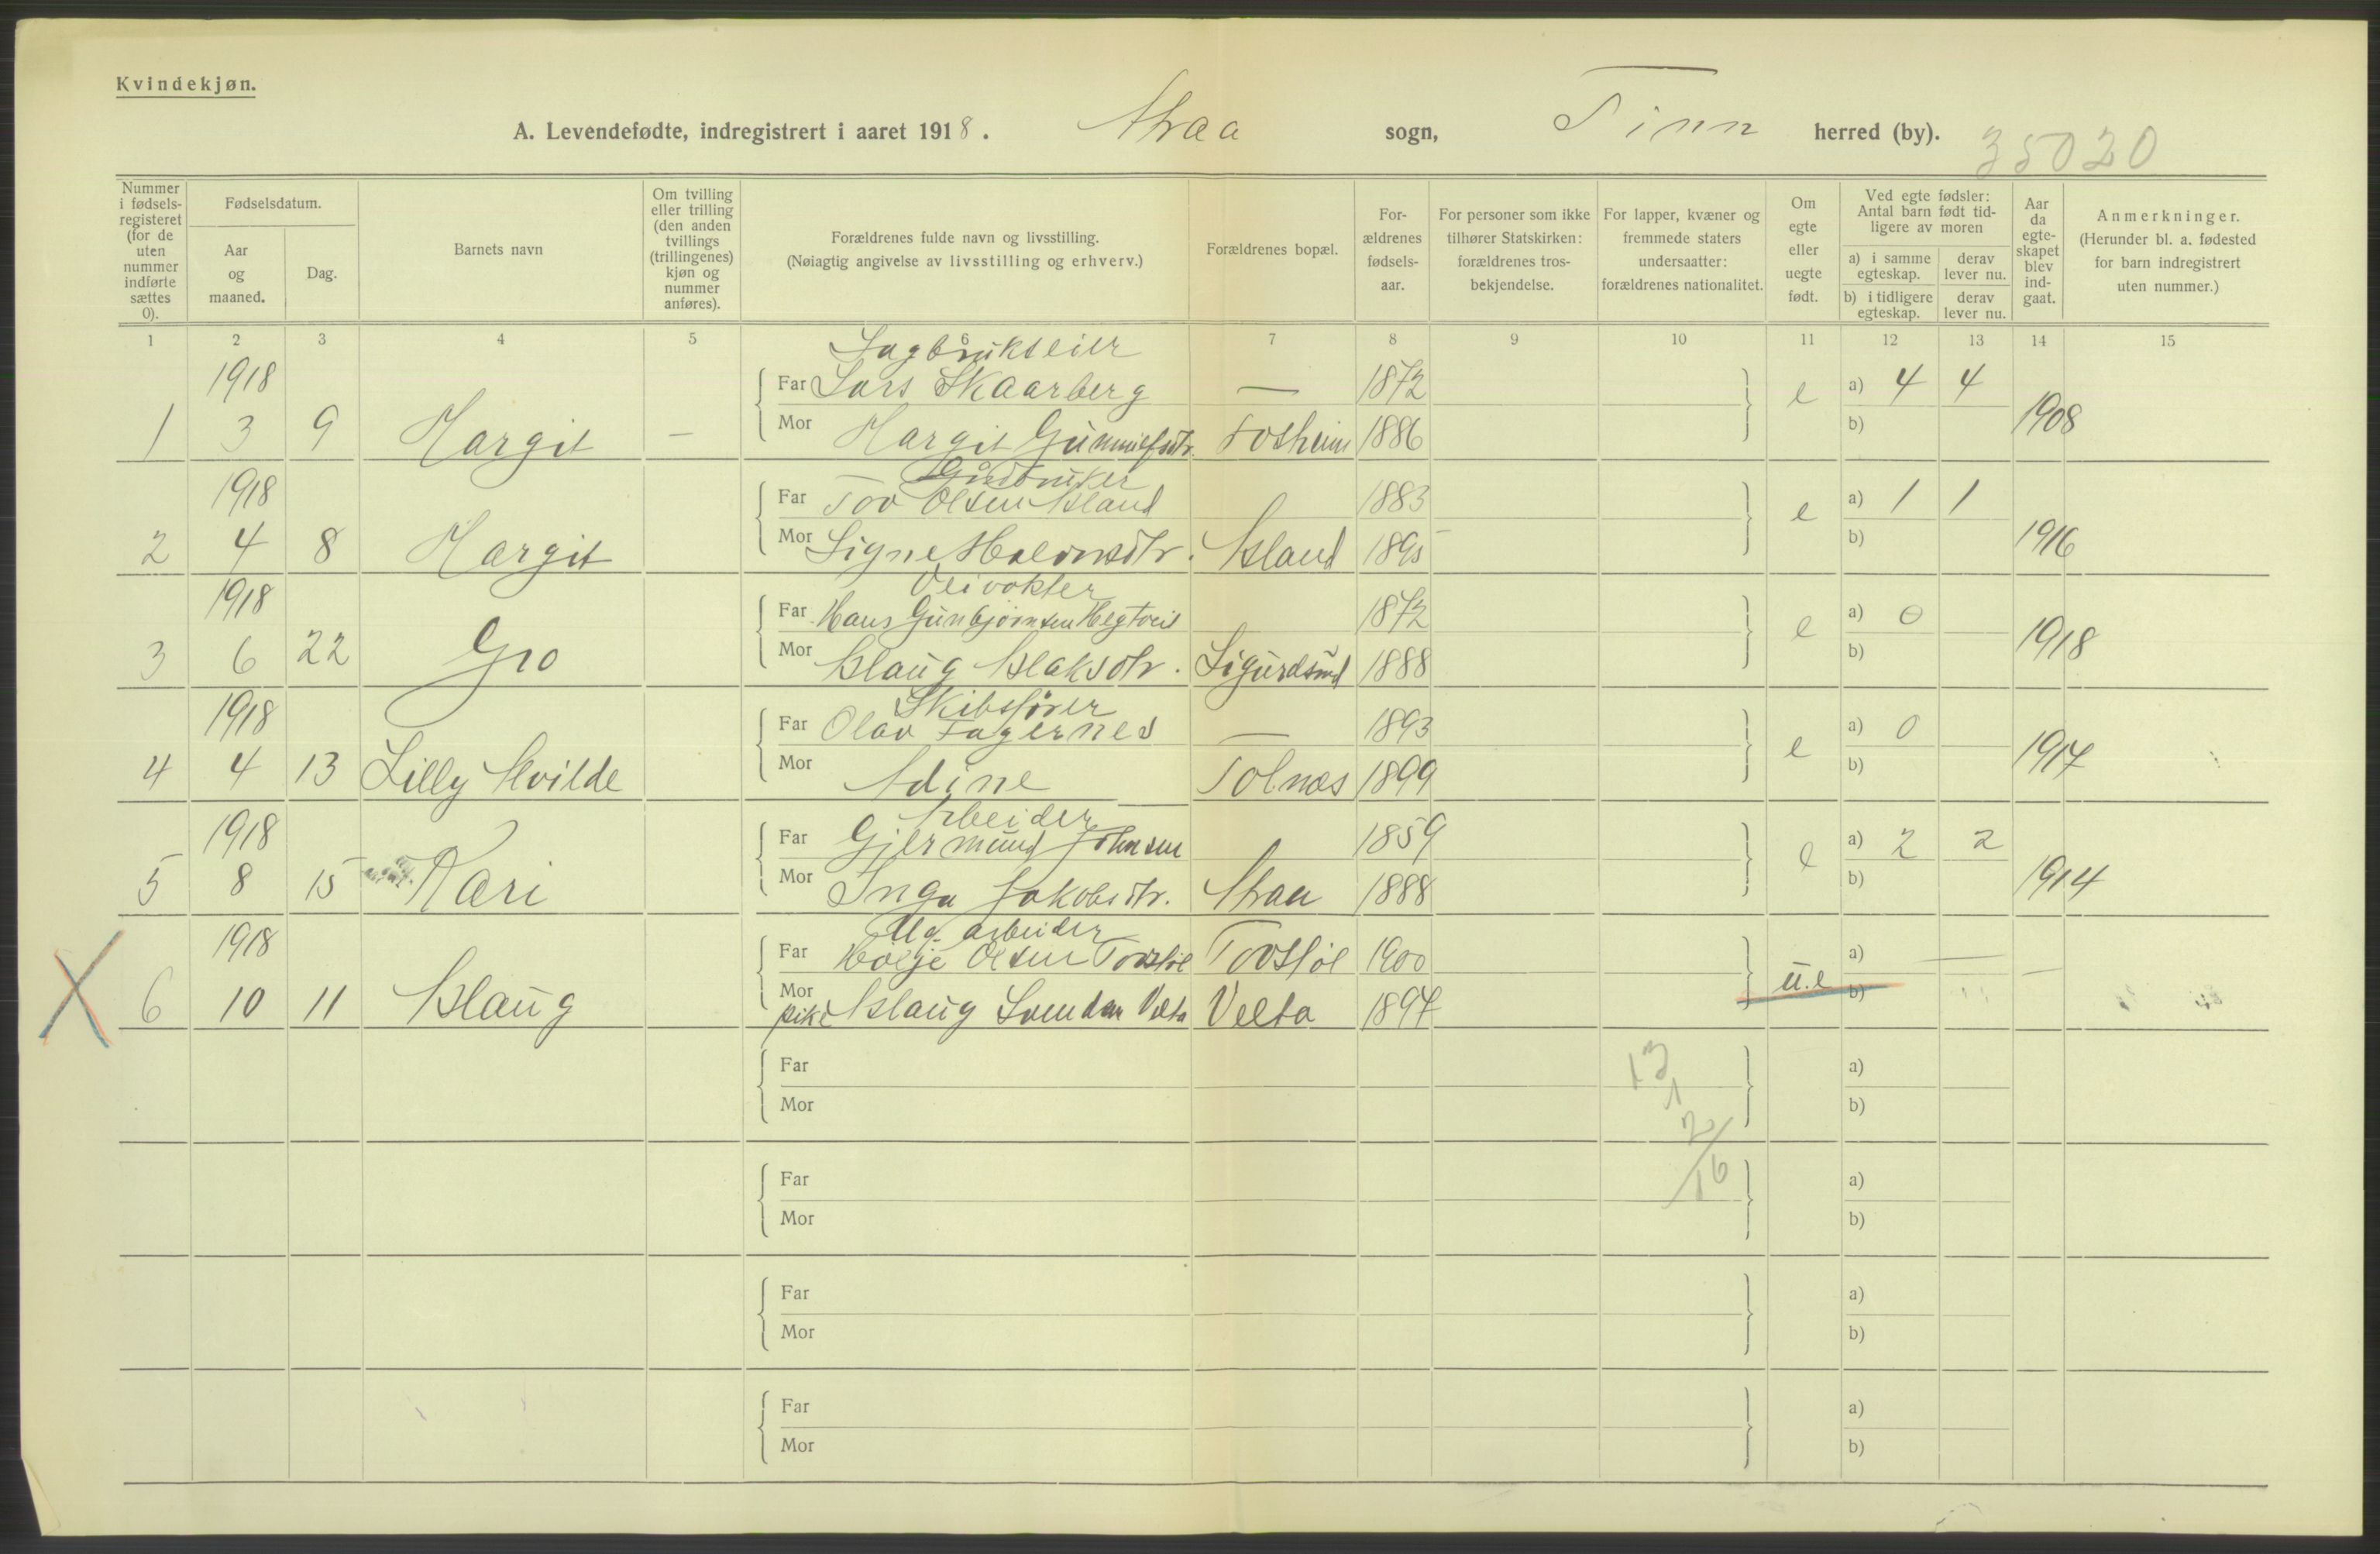 Kvindekjøn.
A. Levendefødte, indregistrert i aaret 1918. Atraa sogn, Tinn herred (by). 35020
Nummer i fødselsregisteret (for de uten nummer indførte sættes 0).
Fødselsdatum.
Aar og maaned.
Dag.
Barnets navn
Om tvilling eller trilling (den anden tvillings (trillingenes) kjøn og nummer anføres).
Forældrenes fulde navn og livsstilling.
(Nøiagtig angivelse av livsstilling og erhverv.)
Forældrenes bopæl.
Forældrenes fødselsaar.
For personer som ikke tilhører Statskirken: forældrenes trosbekjendelse.
For lapper, kvæner og fremmede staters undersaatter: forældrenes nationalitet.
Om egte eller uegte født.
Ved egte fødsler: Antal barn født tidligere av moren
a) i samme egteskap.
derav lever nu.
b) i tidligere egteskap.
derav lever nu.
Aar da egteskapet blev indgaat.
Anmerkninger.
(Herunder bl. a. fødested for barn indregistrert uten nummer.)
1 2 3 4 5 7 8 9 10 11 12 13 14 15
Sagbrukseier
1918 Far Lars Skaarberg — 1872 e a) 4 4
1 3 9 Margit — Mor Margit Gunnulfsdtr. Fosheim 1886 b) 1908
Gaardbruker
1918 Far Tov Olsen Aasland 1883 e a) 1 1
2 4 8 Margit Mor Signe Halvorsdtr. Aasland 1895 b) 1916
Veivokter
1918 Far Hans Gunbjørnsen Hegtveit 1872 e a) 0
3 6 22 Gro Mor Aslaug Aslaksdtr. Sigurdsrud 1888 b) 1918
Skibsfører
1918 Far Olav Fagernes — 1893 e a) 0
4 4 13 Lilly Alvilde Mor Adine Tolnæs 1899 b) 1917
Arbeider
1918 Far Gjermund Johnsen 1859 e a) 2 2
5 8 15 Kari Mor Inga Jakobsdtr. Atraa 1888 b) 1914
Ug. arbeider
1918 Far Høljé Olsen Tovsløl Tovsløl 1900 u.e a) —
6 10 11 Aslaug Mor pike Aslaug Svendsen Velta Velta 1897 b)
Far a)
Mor b)
13
1
2/16
Far a)
Mor b)
Far a)
Mor b)
Far a)
Mor b)